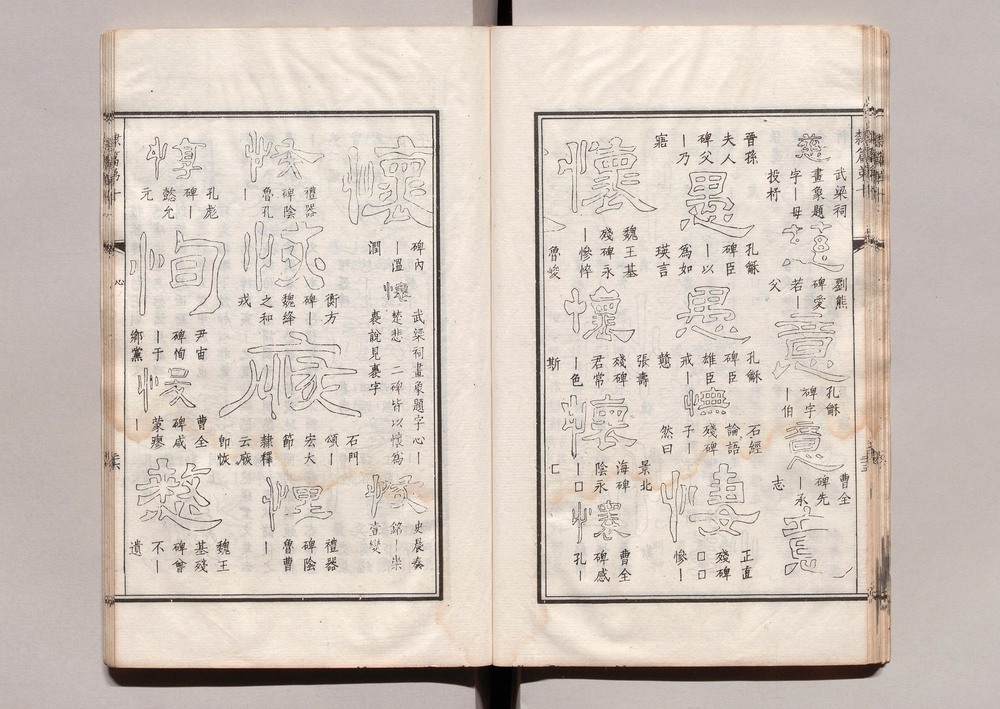 隸篇第十
慈
武梁祠
畫象題
字｜母
投杼
劉熊
碑愛
若｜
父
意
孔龢
碑字
｜伯
意
曹全
碑先
｜承
志
意
晉孫
夫人
碑父
｜乃
寤
愚
孔龢
碑臣
｜以
為如
瑛言
愚
孔龢
碑臣
雄臣
戒｜
戇
憮
石經
論語
殘碑
子｜
然曰
悽
正直
殘碑
□□
慘｜
懷
魏王基
殘碑永
｜慘悴
魯峻
懷
張壽
殘碑
君常
｜色
斯
懷
景北
海碑
陰永
｜□
匚
懷
曹全
碑感
孔｜
懷
碑內
｜溫
潤
懷
武梁祠畫象題字心｜
楚悲 二碑皆以懷為
褱說見褱字
恢
史晨奏
銘｜崇
壹變
恢
禮器
碑陰
魯孔
｜
恢
衡方
碑｜
魏絳
之和
戎
石門
頌｜
宏大
節
隸釋
悝
禮器
碑陰
魯曹
｜
惇
孔彪
碑｜
懿允
元
恂
尹宙
碑恂
｜于
鄉黨
曹全
碑咸
蒙瘳
｜
慭
魏王
基殘
碑曾
不｜
遺
心